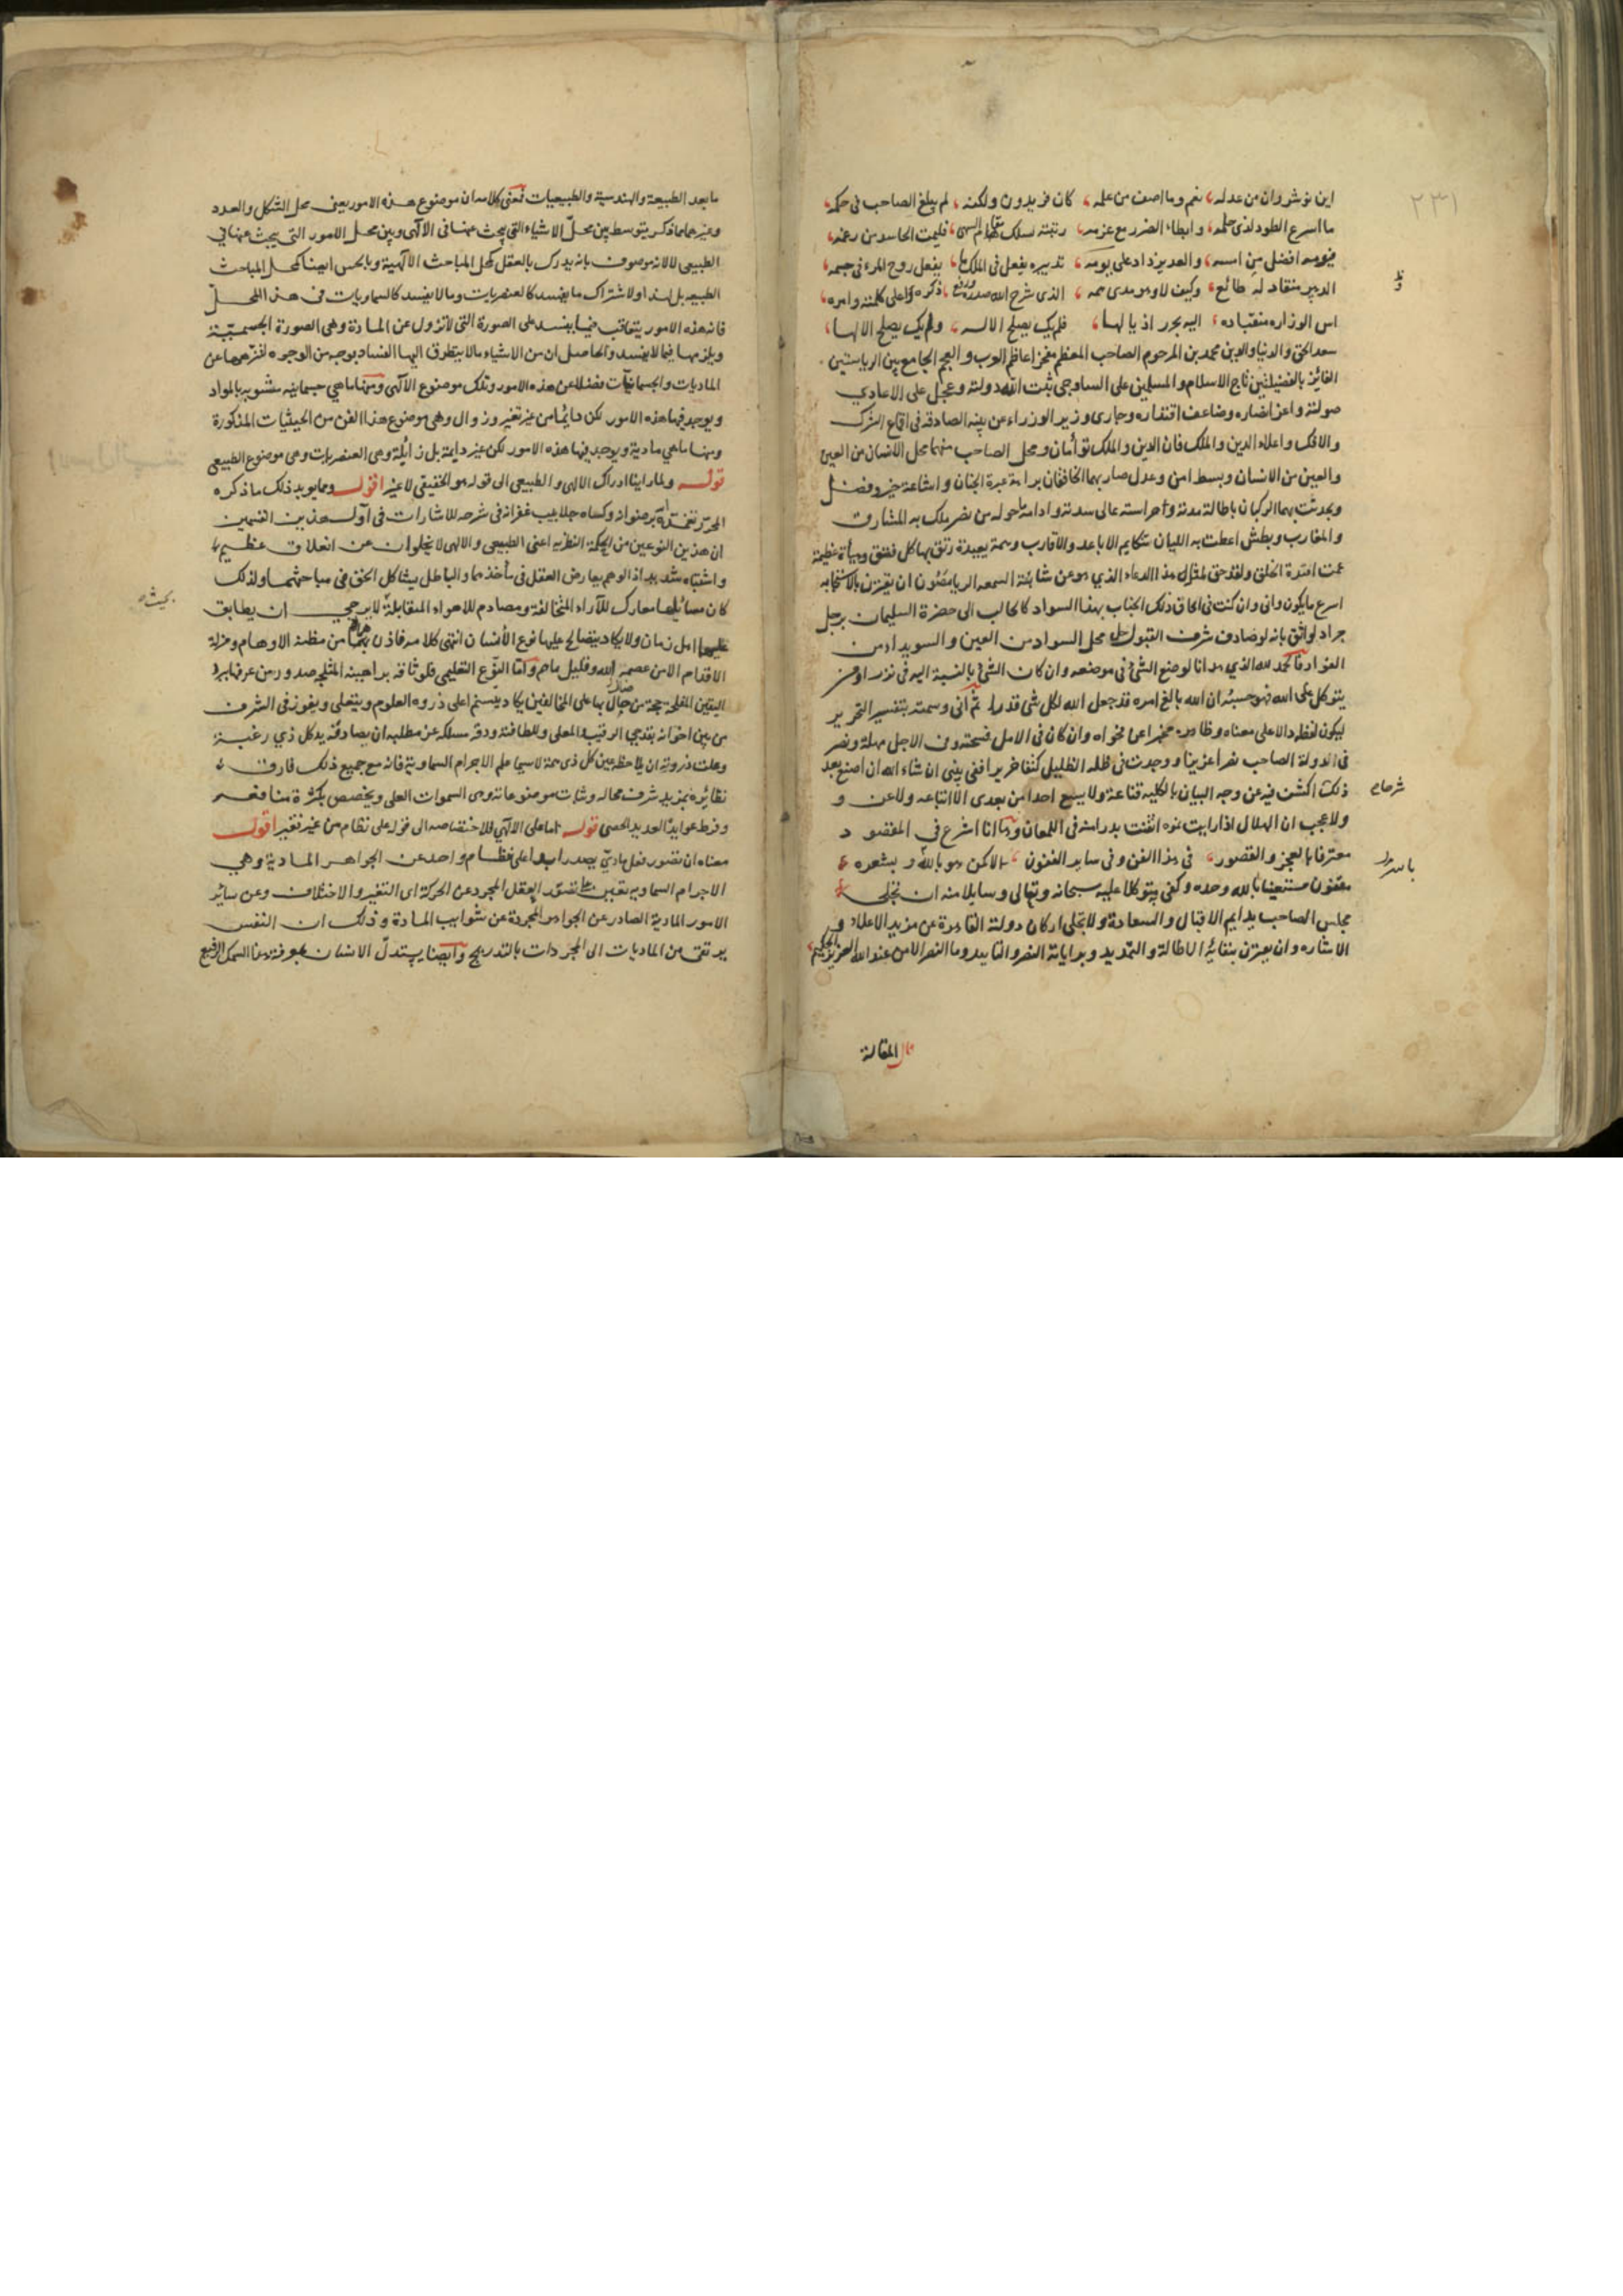 ٢٣١
اين نوشروان من عدله، نعم وما اصف من علمه، كان فريدون ولكنه، لم يبلغ الصاحب في حكمه،
ما اسرع الطود لذي حلمه، وابطاء الضرر مع عزمه، رتبته سلك فليمت الحاسد من رغمه،
فيومه افضل من امسه، والعد يزداد على يومه، تدبيره يفعل في الملك ما، يفعل روح المرء في جسمه،
الدهر منقاد له طائع، وكيف لا وهو مدى همه، الذي شرح الله صدره ذكره واعلى كلمته وامره،
اس الوزاره منقاده، اليه يجرر اذيالها، فلم يك يصلح الا له، ولم يك يصلح الا لها،
سعد الحق والدنيا والدين محمد بن المرحوم الصاحب المعظم مفخر اعاظم العرب والعجم الجامع بين الرياستين
الفائز بالفضيلتين تاج الاسلام والمسلمين على الساوجي ثبت الله دولته وعجل على الاعادي
صولته واعز انصاره وضاعف اقتداره وجارى وزير الوزراء عن نيته الصادقة في اقماع الشرك
والافك واعلاء الدين والملك فان الدين والملك توأمان ومحل الصاحب منهما محل الانسان من العين
والعين من الانسان وبسط امن وعدل صار بهما الخافقان براحة عبرة الجنان واشاعة خير وفضل
ويحدث بهما الركبان باطالة مدته وحراسته عالى سدته وادامة احواله من نصر ملك به المشارق
والمغارب وبطش اعطت به الليان شكايم الاباعد والاقارب وهمة بعيدة رتق بها كل فتق وهيأة عظيمة
عمت افئدة الخلق ولقد حق لمثل هذا الدعاء الذي هو عن شائبة السمعه والريا مصون ان يقترن بالاستجابه
اسرع ما يكون وانى وان كنت في الحاق ذلك الجناب بهذا السواد كالجالب الى حضرة السليمان برجل
جراد لواثق بانه لو صادف شرف القبول لحل محل السواد من العين والسويداء من
الفؤاد فالحمد لله الذي هدانا لوضع الشئ في موضعه وان كان الشئ بالنسبة اليه في نذر ومن
يتوكل على الله فهو حسبه ان الله بالغ امره قد جعل الله لكل شئ قدرا ثم انى وسمته بتفسير التحرير
ليكون لفظه دالا على معناه وظاهره مخبرا عن فحواه وان كان في الامل فسحته وفي الاجل مهلة ونصر
في الدولة الصاحب نصرا عزيزا ووجدت في ظله الظليل كنفا حريزا ففي نيتى ان شاء الله ان اصنع بعد
ذلك اكشف فيه عن وجه البيان بالكليه قناعة ولا يسع احدا من بعدى الا اتباعه ولا عن و
شرحا
ولا عجب ان الهلال اذا رايت نموه ايقنت بدرا منه في اللمعان وها انا اشرع في المقصود
معترفا بالعجز والقصور، في هذا الفن وفي ساير الفنون، بالاكمن هو بالله و بشعره
مفتون مستعينا بالله وحده وكفى به متوكلا عليه سبحانه وتعالى وسايلا منه ان تخلى
مجلس الصاحب بدايم الاقبال والسعادة ولا يخلى اركان دولته القاهرة عن مزيد الاعلاء و
الاشاره وان يقترن بنهاية الاطالة والتمديد وبراياته النصر والتاييد وما النصر الا من عند الله العزيز الحكيم،
قال المقالة
ما بعد الطبيعة والهندسية والطبيعيات فمعنى كلامه ان موضوع هذه الامور يعنى محل الشكل والعدد
وغيرهما مما ذكر يتوسط بين محل الاشياء التي يبحث عنها في الالهى وبين محل الامور التي يبحث عنها في
الطبيعى لا لانه موصوف بانه يدرك بالعقل كمحل المباحث الالهية وبالحس ايضا كمحل المباحث
الطبيعيه بل لهذا ولاشتراك ما يفسد كالعنصريات وما لا يفسد كالسماويات في هذا المحل
فان هذه الامور يتعاقب فيما يفسد على الصورة التي لا تزول عن المادة وهي الصورة الجسمية
ويلزمها فيما لا يفسد والحاصل ان من الاشياء ما لا يتطرق اليها الفساد بوجه من الوجوه لتنزهها عن
الماديات والجسمانيات فضلا عن هذه الامور وتلك موضوع الالهى ومنها ما هي جسمانيه مشوبه بالمواد
ويوجد فيها هذه الامور لكن دايما من غير تغير وزوال وهي موضوع هذا الفن من الحيثيات المذكورة
ومنها ما هي مادية ويوجد فيها هذه الامور لكن غير دايمة بل زايلة وهي العنصريات وهي موضوع الطبيعى
قوله ولما راينا ادراك الالهى والطبيعى الى قوله هو الحقيقي لا غير اقول ومما يويد ذلك ما ذكره
المحرر تغمده الله برضوانه وكساه جلابيب غفرانه في شرحه للاشارات في اول هذين القسمين
ان هذين النوعين من الحكمة النظريه اعنى الطبيعى والالهى لا يخلوان عن انغلاق عظيم
واشتباه شديد اذ الوهم يعارض العقل في مأخذهما والباطل يشاكل الحق في مباحثهما ولذلك
كان مسائلهما معارك للآراء المتخالفة ومصادم للاهواء المتقابلة لا يرجى ان يطابق
بحيث
عليها اهل زمان ولا يكاد يتصالح عليها نوع الانسان انتهى كلامه فاذن هما من مظنة الاوهام ومزلة
الاقدام الا من عصمه الله وقليل ما هم واما النوع التعليمى فلوثاقة براهينه المثلجه صدور من عرفها ببرد
اليقين المفلجه حجة من بها على المخالفين يكاد يتسنم اعلى ذروه العلوم ويتعلى ويفوز في الشرف
من بين اخوانه بقدحي الرقيب والمعلى وللطافته ودقة مسلكه عن مطلبه ان يصادفه يد كل ذي رغبة
وعلت ذروته ان يلاحظه عين كل ذى همة لا سيما علم الاجرام السماوية فانه مع جميع ذلك فارق
نظائره بمزيد شرف محاله وثبات موضوعاته وهى السموات العلى ويخصص بكثرة منافعه
وفرط عوايده العديد الحصى قوله اما على الالهى فلاختصاصه الى قوله على نظام من غير تغير اقول
معناه ان تصور فعل مادي يصدر ابدا على نظام واحد عن الجواهر المادية وهي
الاجرام السماويه يعين على تصور العقل المجرد عن الحركة اى التغير والاختلاف وعن سائر
الامور المادية الصادر عن الجواهر المجردة عن شوايب المادة وذلك ان النفس
يرتقى من الماديات الى المجردات بالتدريج وايضا يستدل الانسان بمعرفة هذا السمك الرفيع